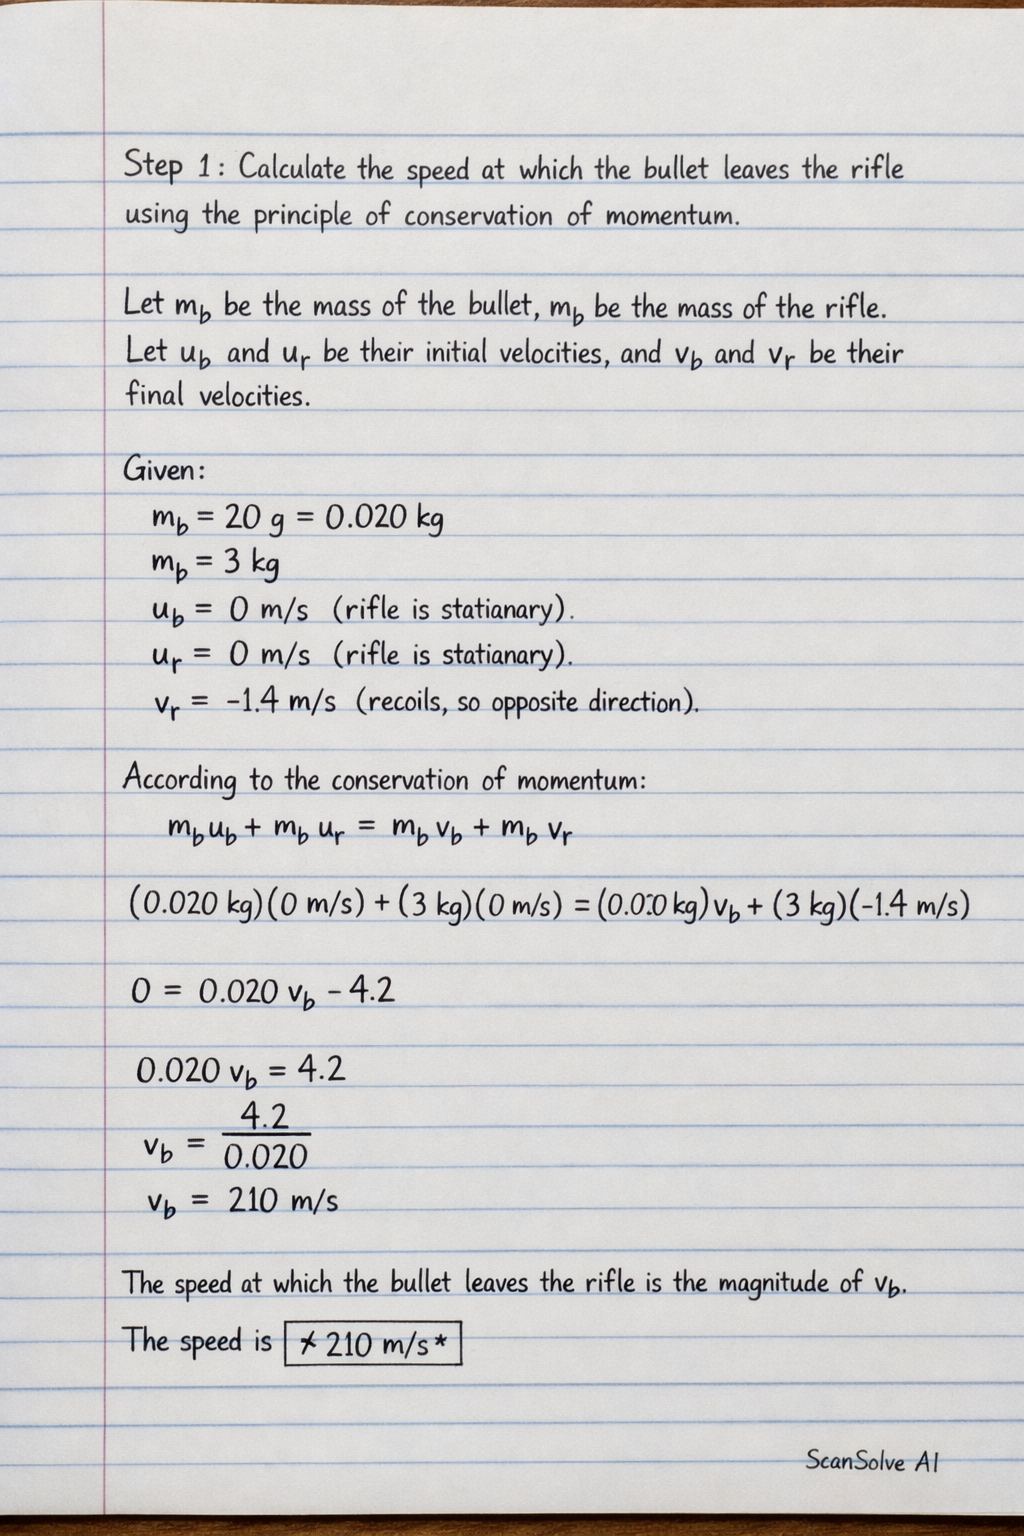 Step 1: Calculate the speed at which the bullet leaves the rifle
using the principle of conservation of momentum.
Let m_b be the mass of the bullet, m_b be the mass of the rifle.
Let u_b and u_r be their initial velocities, and v_b and v_r be their
final velocities.
Given:
m_b = 20 g = 0.020 kg
m_b = 3 kg
u_b = 0 m/s (rifle is stationary).
u_r = 0 m/s (rifle is stationary).
v_r = -1.4 m/s (recoils, so opposite direction).
According to the conservation of momentum:
m_b u_b + m_b u_r = m_b v_b + m_b v_r
(0.020 kg)(0 m/s) + (3 kg)(0 m/s) = (0.020 kg) v_b + (3 kg)(-1.4 m/s)
0 = 0.020 v_b - 4.2
0.020 v_b = 4.2
v_b = 4.2 / 0.020
v_b = 210 m/s
The speed at which the bullet leaves the rifle is the magnitude of v_b.
The speed is * 210 m/s*
ScanSolve AI